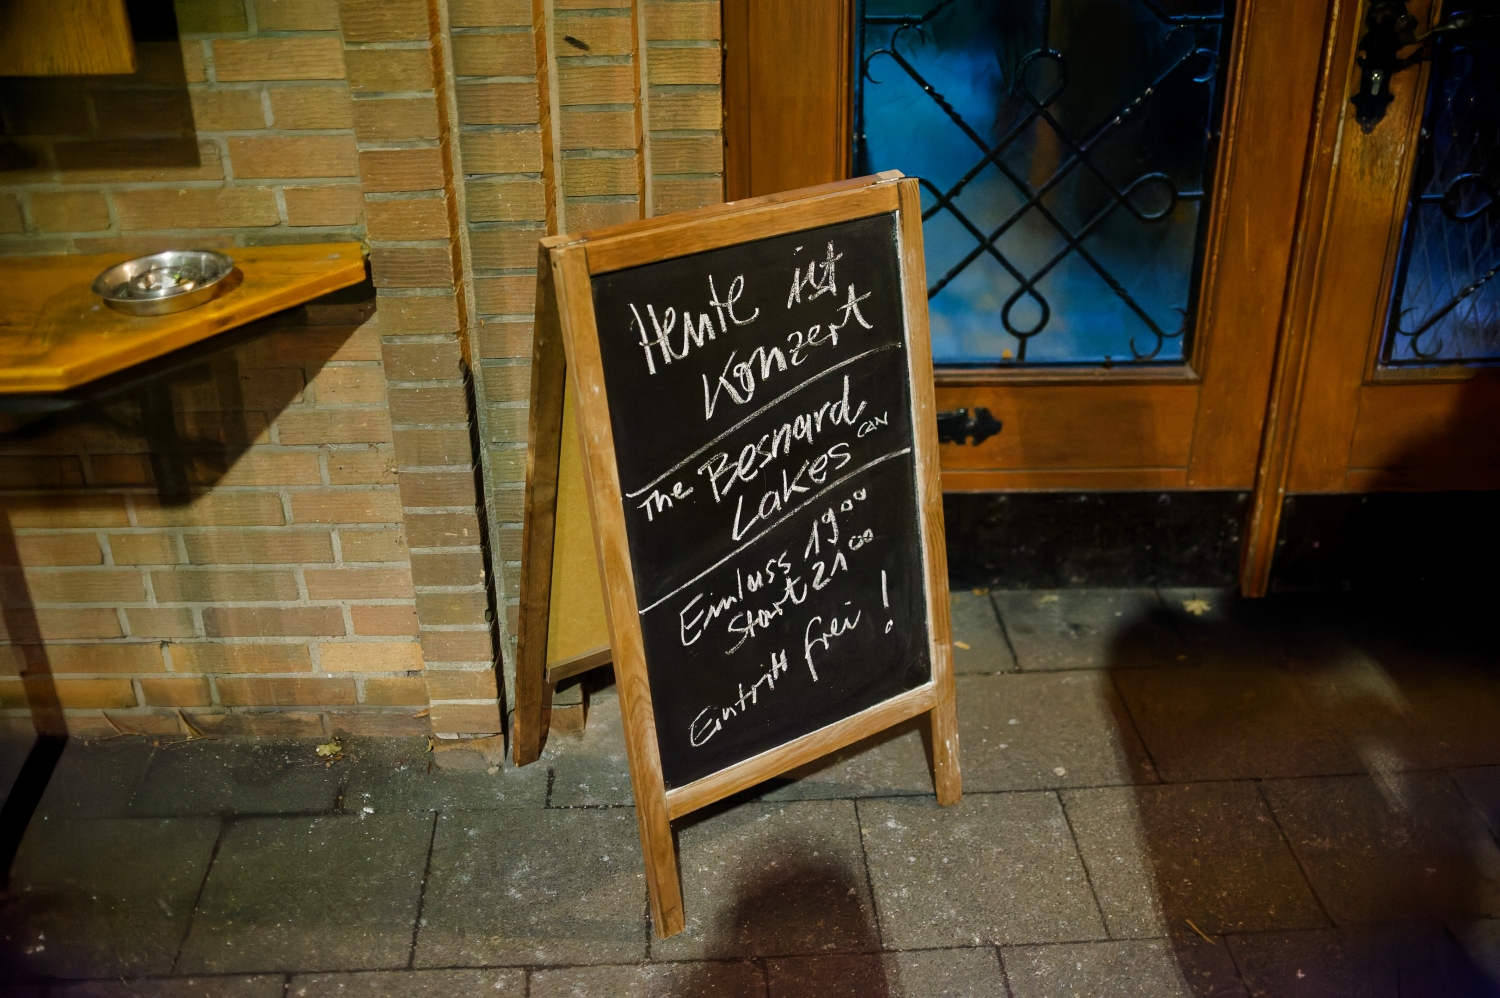 Heute ist
Konzert
The Besnard
Lakes CAN
Einlass 19⁰⁰
Start 21⁰⁰
Eintritt frei!